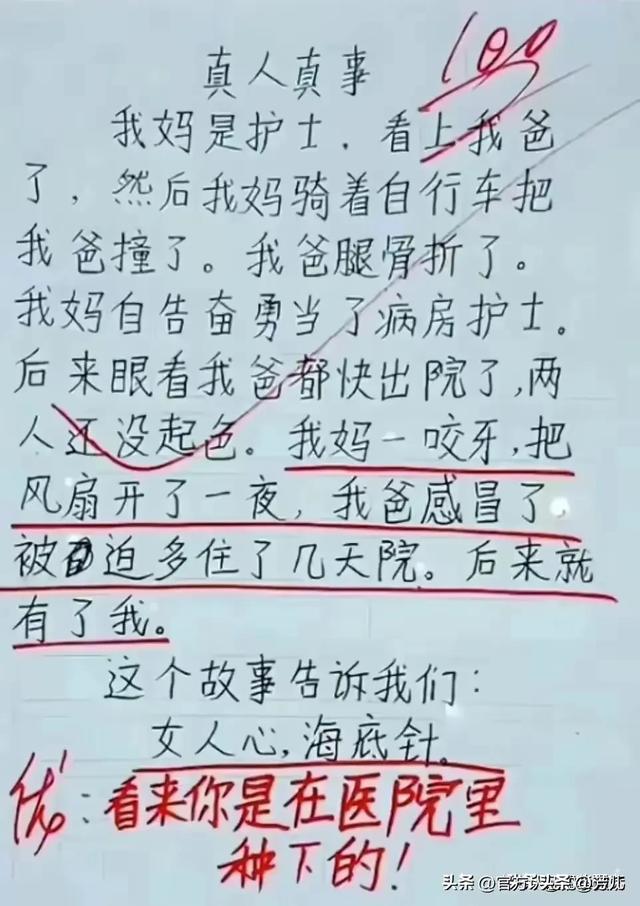 100
真人真事
我妈是护士.看上我爸
了,然后我妈骑着自行车把
我爸撞了。我爸腿骨折了。
我妈自告奋勇当了病房护士。
后来眼看我爸都快出院了,两
人还没起色。我妈一咬牙,把
风扇开了一夜,我爸感冒了,
被迫多住了几天院。后来就
有了我。
这个故事告诉我们:
女人心,海底针。
优:看来你是在医院里
种下的!
头条 @